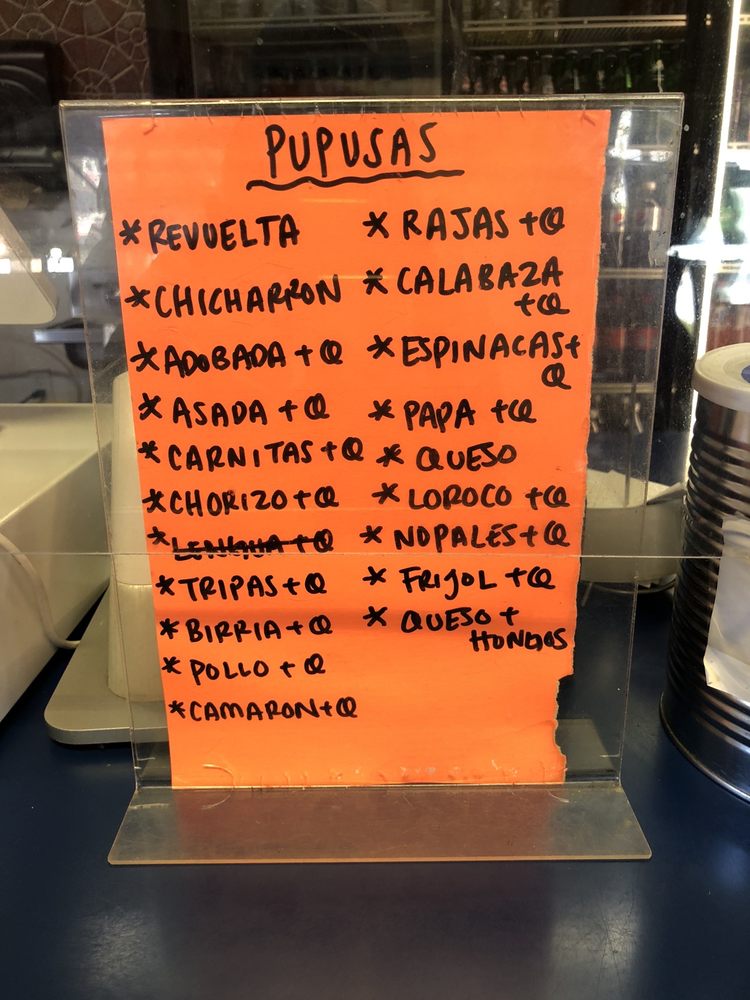 PUPUSAS
* REVUELTA
* CHICHARRON
* ADOBADA + Q
* ASADA + Q
* CARNITAS + Q
* CHORIZO + Q
* LENGUA + Q
* TRIPAS + Q
* BIRRIA + Q
* POLLO + Q
* CAMARON + Q
* RAJAS + Q
* CALABAZA
+ Q
* ESPINACAS +
Q
* PAPA + Q
* QUESO
* LOROCO + Q
* NOPALES + Q
* FRIJOL + Q
* QUESO +
HONGOS